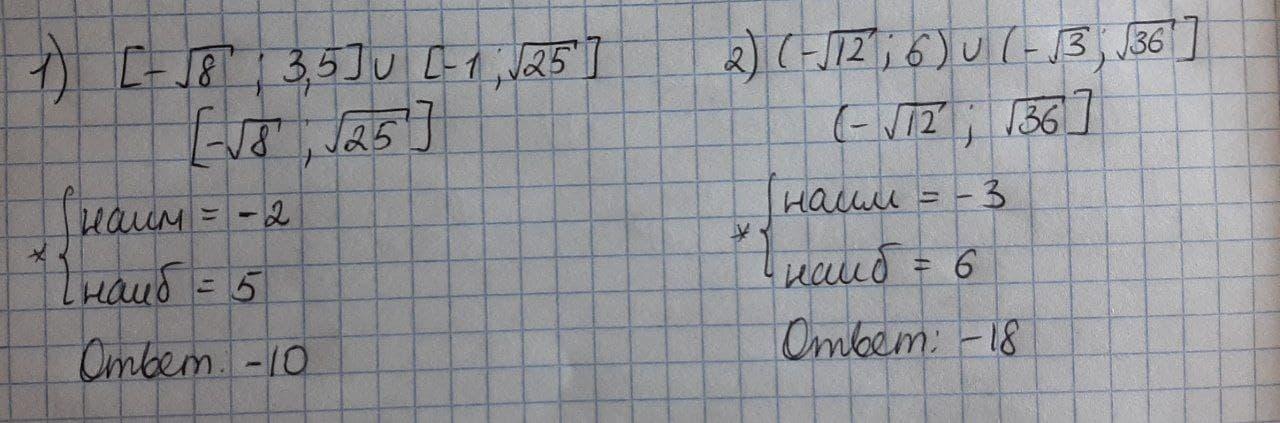 1) [-√8 ; 3,5] ∪ [-1 ; √25]
[-√8 ; √25]
* { наим = -2
наиб = 5
Ответ: -10
2) (-√12 ; 6) ∪ (-√3 ; √36]
(-√12 ; √36]
* { наим = -3
наиб = 6
Ответ: -18